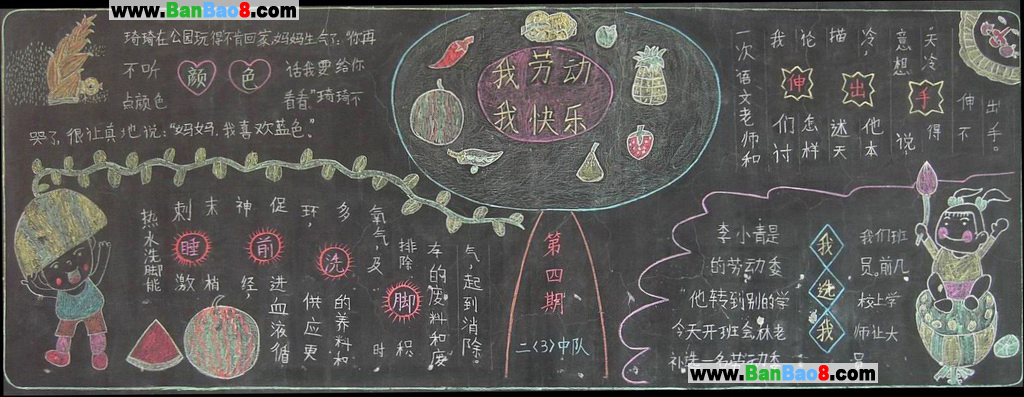 www.BanBao8.com
琦琦在公园玩得不肯回家,妈妈生气了:"你再
不听 颜色 话我要给你
点颜色 看看"琦琦不
哭了,很认真地说:"妈妈,我喜欢蓝色。"
我劳动
我快乐
天冷
意想
冷,
描
论
我
一次语文老师和
伸出手
们怎样讨
述天
他本
说,
得
伸不
出手。
睡前洗脚
热水洗脚能
刺激
末梢
神经,
促进血液循
环,供应更
多的养料和
氧气,及时
排除积
存的废料和废
气,起到消除
第四期
二〈3〉中队
我选我
李小青是 我们班
的劳动委 员。前几
"他转到别的学 校上学
今天开班会,林老 师让大
补选一名劳动委 员
www.BanBao8.com
www.BanBao8.com